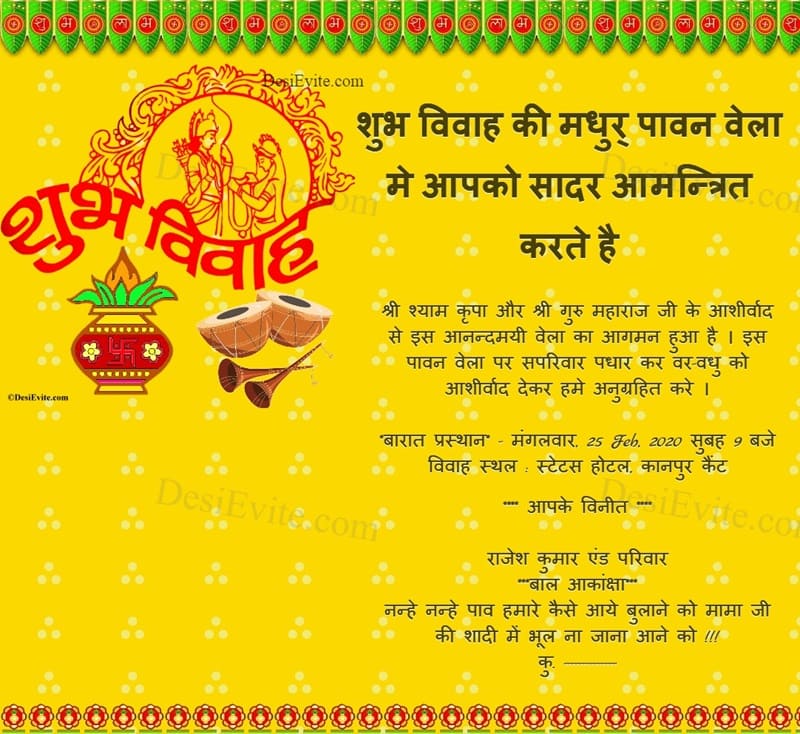 शुभ लाभ शुभ लाभ शुभ लाभ शुभ लाभ शुभ लाभ
DesiEvite.com
शुभ विवाह
©DesiEvite.com
शुभ विवाह की मधुर् पावन वेला
मे आपको सादर आमन्त्रित
करते है
श्री श्याम कृपा और श्री गुरु महाराज जी के आशीर्वाद
से इस आनन्दमयी वेला का आगमन हुआ है । इस
पावन वेला पर सपरिवार पधार कर वर-वधु को
आशीर्वाद देकर हमे अनुग्रहित करे ।
"बारात प्रस्थान" - मंगलवार, 25 Feb, 2020 सुबह 9 बजे
विवाह स्थल : स्टेटस होटल, कानपुर कैंट
**** आपके विनीत ****
राजेश कुमार एंड परिवार
***बाल आकांक्षा***
नन्हे नन्हे पाव हमारे कैसे आये बुलाने को मामा जी
की शादी में भूल ना जाना आने को !!!
कु. ---------------
DesiEvite.com
DesiEvite.com
DesiEvite.com
DesiEvite.com